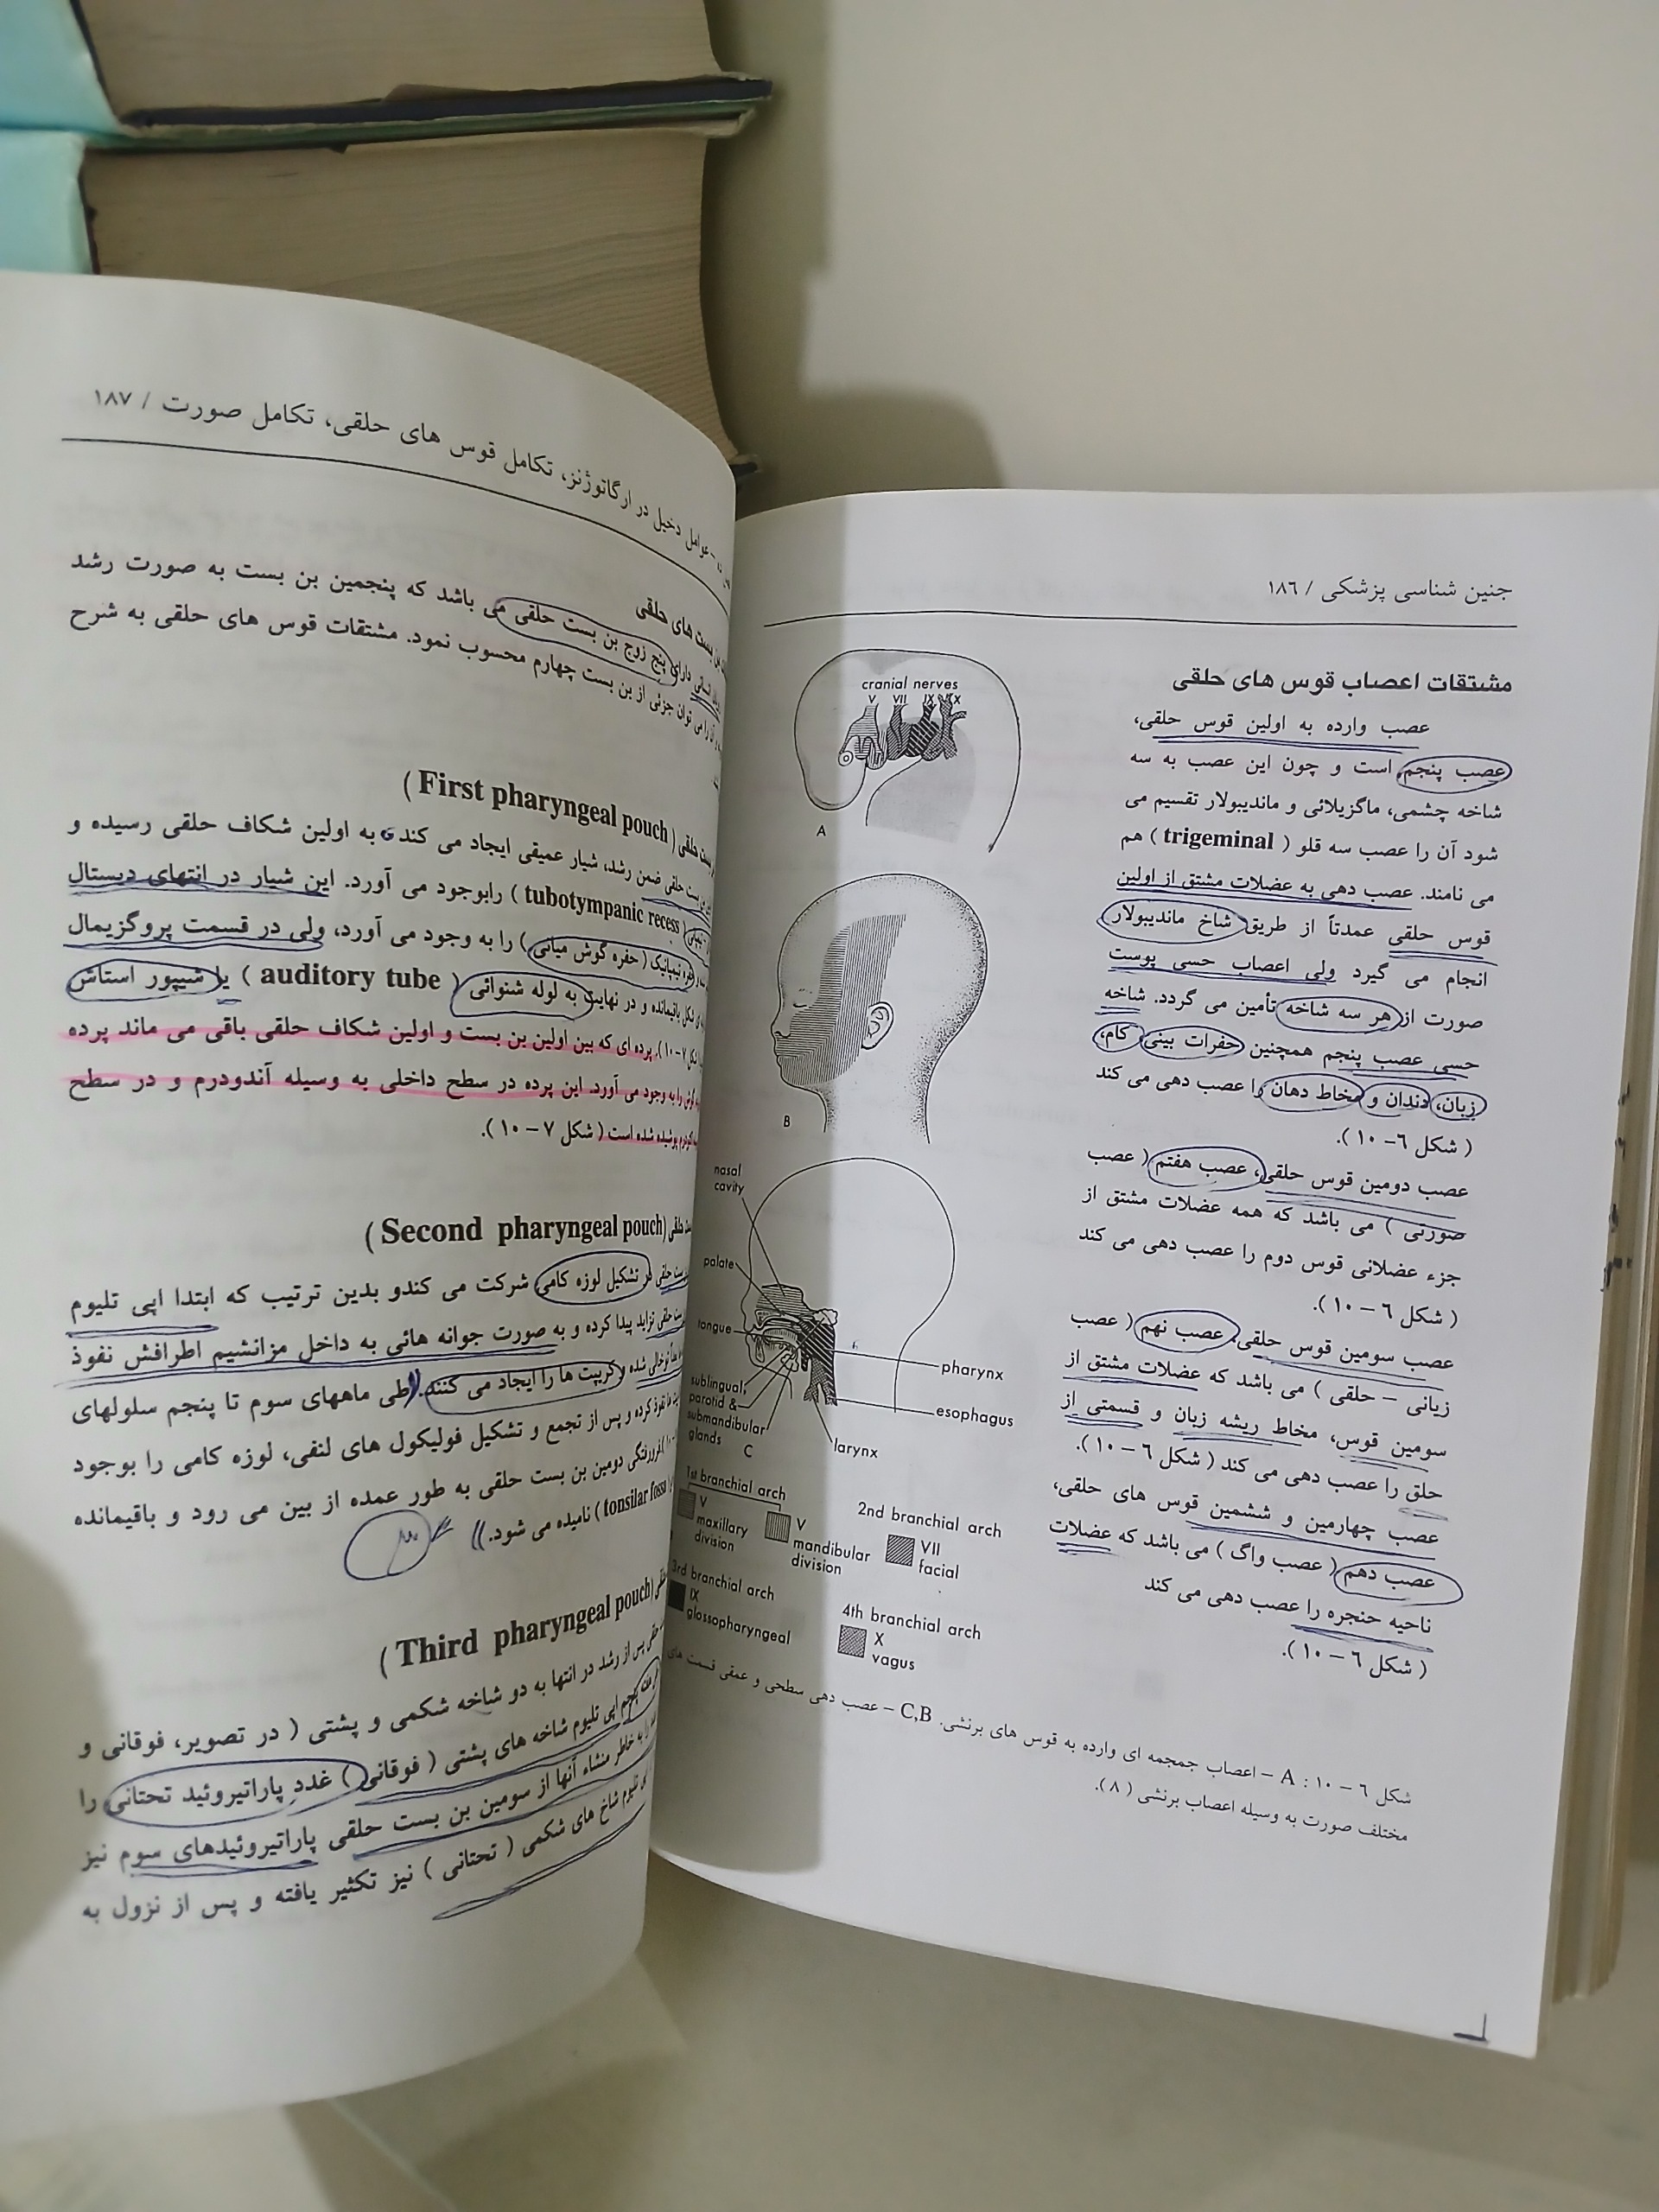 جنین شناسی پزشکی / ۱۸۶
مشتقات اعصاب قوس های حلقی
عصب وارده به اولین قوس حلقی،
عصب پنجم است و چون این عصب به سه
شاخه چشمی، ماگزیلائی و ماندیبولار تقسیم می
شود آن را عصب سه قلو ( trigeminal ) هم
می نامند. عصب دهی به عضلات مشتق از اولین
قوس حلقی عمدتاً از طریق شاخ ماندیبولار
انجام می گیرد ولی اعصاب حسی پوست
صورت از هر سه شاخه تأمین می گردد. شاخه
حسی عصب پنجم همچنین حفرات بینی، کام،
زبان، دندان و مخاط دهان را عصب دهی می کند
( شکل ٦- ۱۰ ).
عصب دومین قوس حلقی، عصب هفتم ( عصب
صورتی ) می باشد که همه عضلات مشتق از
جزء عضلانی قوس دوم را عصب دهی می کند
( شکل ٦ – ۱۰ ).
عصب سومین قوس حلقی، عصب نهم ( عصب
زبانی – حلقی ) می باشد که عضلات مشتق از
سومین قوس، مخاط ریشه زبان و قسمتی از
حلق را عصب دهی می کند ( شکل ٦ – ۱۰ ).
عصب چهارمین و ششمین قوس های حلقی،
عصب دهم ( عصب واگ ) می باشد که عضلات
ناحیه حنجره را عصب دهی می کند
( شکل ٦ – ۱۰ ).
cranial nerves
V VII IX X
A
B
nasal
cavity
palate
tongue
sublingual,
parotid &
submandibular
glands
C
pharynx
esophagus
larynx
1st branchial arch
V
maxillary
division
V
mandibular
division
2nd branchial arch
VII
facial
3rd branchial arch
IX
glossopharyngeal
4th branchial arch
X
vagus
شکل ٦ – ۱۰ : A – اعصاب جمجمه ای وارده به قوس های برنشی. C,B – عصب دهی سطحی و عمقی قسمت های
مختلف صورت به وسیله اعصاب برنشی ( ۸ ).
– عوامل دخیل در ارگانوژنز، تکامل قوس های حلقی، تکامل صورت / ۱۸۷
بن بست های حلقی
انسانی دارای پنج زوج بن بست حلقی می باشد که پنجمین بن بست به صورت رشد
آن را می توان جزئی از بن بست چهارم محسوب نمود. مشتقات قوس های حلقی به شرح
بست حلقی ( First pharyngeal pouch )
بست حلقی ضمن رشد، شیار عمیقی ایجاد می کند به اولین شکاف حلقی رسیده و
( tubotympanic recess ) رابوجود می آورد. این شیار در انتهای دیستال
تیمپانیک ( حفره گوش میانی ) را به وجود می آورد، ولی در قسمت پروگزیمال
شکل باقیمانده و در نهایت به لوله شنوائی ( auditory tube ) یا شیپور استاش
شکل ۷ – ۱۰ ). پرده ای که بین اولین بن بست و اولین شکاف حلقی باقی می ماند پرده
گوش را به وجود می آورد. این پرده در سطح داخلی به وسیله آندودرم و در سطح
اکتودرم پوشیده شده است ( شکل ۷ – ۱۰ ).
بست حلقی ( Second pharyngeal pouch )
بست حلقی در تشکیل لوزه کامی شرکت می کندو بدین ترتیب که ابتدا اپی تلیوم
بست حلقی تزاید پیدا کرده و به صورت جوانه هائی به داخل مزانشیم اطرافش نفوذ
توخالی شده و کریپت ها را ایجاد می کنند. طی ماههای سوم تا پنجم سلولهای
نفوذ کرده و پس از تجمع و تشکیل فولیکول های لنفی، لوزه کامی را بوجود
فرورفتگی دومین بن بست حلقی به طور عمده از بین می رود و باقیمانده
( tonsilar fossa ) نامیده می شود.
حلقی ( Third pharyngeal pouch )
حلقی پس از رشد در انتها به دو شاخه شکمی و پشتی ( در تصویر، فوقانی و
هفته پنجم اپی تلیوم شاخه های پشتی ( فوقانی ) غدد پاراتیروئید تحتانی را
را به خاطر منشاء آنها از سومین بن بست حلقی پاراتیروئیدهای سوم نیز
تلیوم شاخ های شکمی ( تحتانی ) نیز تکثیر یافته و پس از نزول به